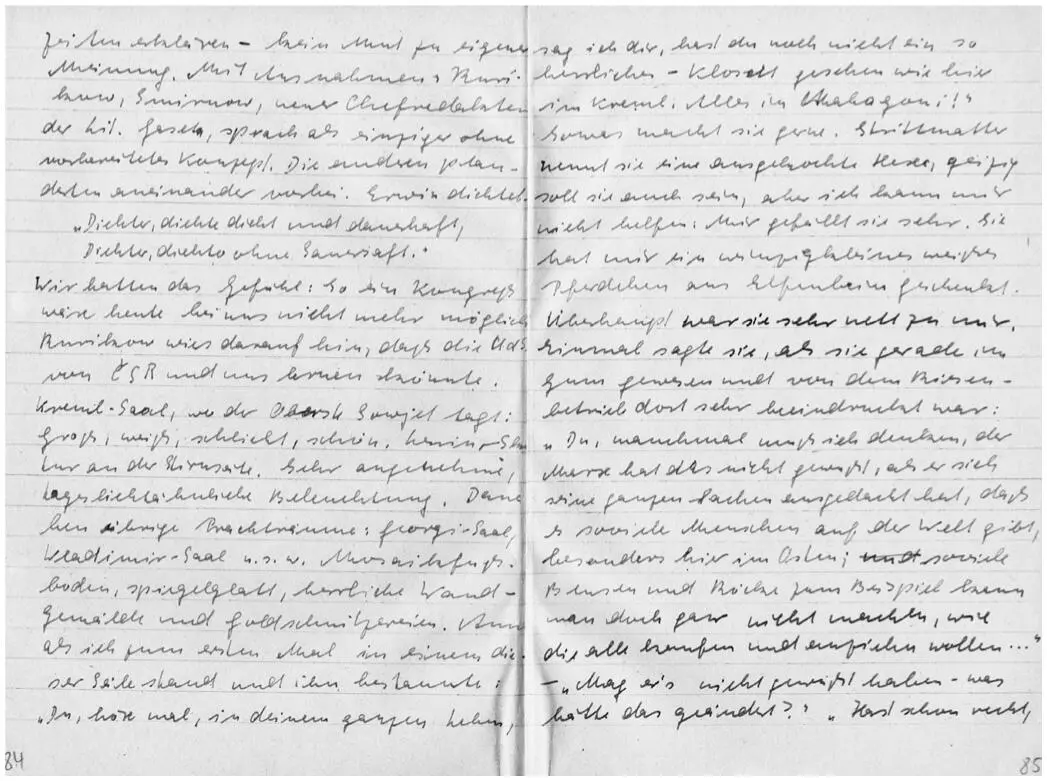 zeiten erklären – kein Mut zu eigener
Meinung. Mit Ausnahmen: Buri-
kow, Smirnow, neuer Chefredakteur
der Lit. Gaseta, sprach als einziger ohne
vorbereitetes Konzept. Die anderen plau-
derten aneinander vorbei. Erwin dichtet:
„Dichter, dichte dicht und dauerhaft,
Dichter, dichte ohne Sauersaft."
Wir hatten das Gefühl: So ein Kongreß
wäre heute bei uns nicht mehr möglich.
Burikow wies darauf hin, daß die UdS
von ČSR und uns lernen könnte.
Kreml-Saal, wo der Oberste Sowjet tagt:
groß, weiß, schlicht, schön. Lenin-Sta
tur an der Stirnseite. Sehr angenehme,
tageslichtähnliche Beleuchtung. Dane
ben übrige Prachträume: Georgi-Saal,
Wladimir-Saal u.s.w. Mosaikfuß-
boden, spiegelglatt, herrliche Wand-
gemälde und Goldschnitzereien. Anna
als ich zum ersten Mal in einem die-
ser Säle stand und ihn bestaunte:
„Du, höre mal, in deinem ganzen Leben,
84
sag ich dir, hast du noch nicht ein so
herrliches – Klosett gesehen wie hier
im Kreml. Alles in Mahagoni!"
Sowas macht sie gerne. Strittmatter
nennt sie eine ausgekochte Hexe, geizig
soll sie auch sein, aber ich kann mir
nicht helfen: Mir gefällt sie sehr. Sie
hat mir ein winzigkleines weißes
Pferdchen aus Elfenbein geschenkt.
Überhaupt war sie sehr nett zu mir.
Einmal sagte sie, als sie gerade im
Gum gewesen und von dem Riesen-
betrieb dort sehr beeindruckt war:
„Du, manchmal muß ich denken, der
Marx hat das nicht gewußt, als er sich
seine ganzen Sachen ausgedacht hat, daß
es soviele Menschen auf der Welt gibt,
besonders hier im Osten; und soviele
Blusen und Röcke zum Beispiel kann
man doch gar nicht machen, wie
die alle kaufen und anziehn wollen..."
– „Mag er's nicht gewußt haben – was
hätte das geändert?" „Hast schon recht,
85